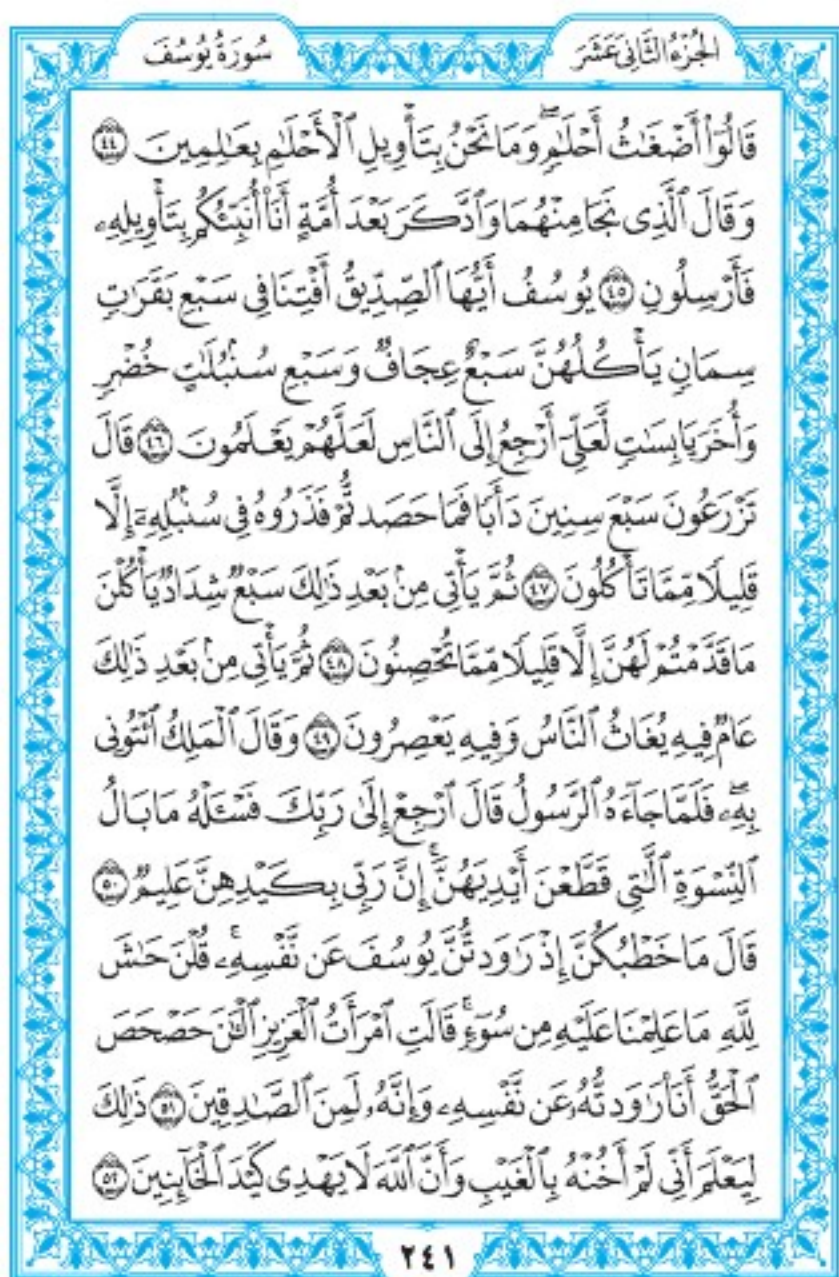 الجُزْءُ الثَّانِي عَشَرَ
سُورَةُ يُوسُفَ
قَالُوٓاْ أَضْغَٰثُ أَحْلَٰمٖۖ وَمَا نَحْنُ بِتَأْوِيلِ ٱلْأَحْلَٰمِ بِعَٰلِمِينَ ٤٤
وَقَالَ ٱلَّذِي نَجَا مِنْهُمَا وَٱدَّكَرَ بَعْدَ أُمَّةٍ أَنَا۠ أُنَبِّئُكُم بِتَأْوِيلِهِۦ
فَأَرْسِلُونِ ٤٥ يُوسُفُ أَيُّهَا ٱلصِّدِّيقُ أَفْتِنَا فِي سَبْعِ بَقَرَٰتٖ
سِمَانٖ يَأْكُلُهُنَّ سَبْعٌ عِجَافٞ وَسَبْعِ سُنۢبُلَٰتٍ خُضْرٖ
وَأُخَرَ يَابِسَٰتٖ لَّعَلِّيٓ أَرْجِعُ إِلَى ٱلنَّاسِ لَعَلَّهُمْ يَعْلَمُونَ ٤٦ قَالَ
تَزْرَعُونَ سَبْعَ سِنِينَ دَأَبٗا فَمَا حَصَدتُّمْ فَذَرُوهُ فِي سُنۢبُلِهِۦٓ إِلَّا
قَلِيلٗا مِّمَّا تَأْكُلُونَ ٤٧ ثُمَّ يَأْتِي مِنۢ بَعْدِ ذَٰلِكَ سَبْعٞ شِدَادٞ يَأْكُلْنَ
مَا قَدَّمْتُمْ لَهُنَّ إِلَّا قَلِيلٗا مِّمَّا تُحْصِنُونَ ٤٨ ثُمَّ يَأْتِي مِنۢ بَعْدِ ذَٰلِكَ
عَامٞ فِيهِ يُغَاثُ ٱلنَّاسُ وَفِيهِ يَعْصِرُونَ ٤٩ وَقَالَ ٱلْمَلِكُ ٱئْتُونِي
بِهِۦۖ فَلَمَّا جَآءَهُ ٱلرَّسُولُ قَالَ ٱرْجِعْ إِلَىٰ رَبِّكَ فَسْـَٔلْهُ مَا بَالُ
ٱلنِّسْوَةِ ٱلَّٰتِي قَطَّعْنَ أَيْدِيَهُنَّۚ إِنَّ رَبِّي بِكَيْدِهِنَّ عَلِيمٞ ٥٠
قَالَ مَا خَطْبُكُنَّ إِذْ رَٰوَدتُّنَّ يُوسُفَ عَن نَّفْسِهِۦۚ قُلْنَ حَٰشَ
لِلَّهِ مَا عَلِمْنَا عَلَيْهِ مِن سُوٓءٖۚ قَالَتِ ٱمْرَأَتُ ٱلْعَزِيزِ ٱلْـَٰٔنَ حَصْحَصَ
ٱلْحَقُّ أَنَا۠ رَٰوَدتُّهُۥ عَن نَّفْسِهِۦ وَإِنَّهُۥ لَمِنَ ٱلصَّٰدِقِينَ ٥١ ذَٰلِكَ
لِيَعْلَمَ أَنِّي لَمْ أَخُنْهُ بِٱلْغَيْبِ وَأَنَّ ٱللَّهَ لَا يَهْدِي كَيْدَ ٱلْخَآئِنِينَ ٥٢
٢٤١